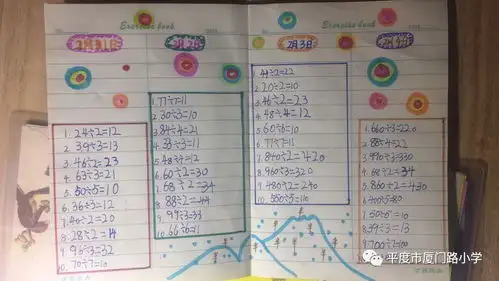 Exercise book
Exercise book
2月3日
1. 24÷2=12
2. 39÷3=13
3. 46÷2=23
4. 63÷3=21
5. 50÷5=10
6. 36÷3=12
7. 40÷2=20
8. 28÷2=14
9. 96÷3=32
10. 70÷7=10
1. 77÷7=11
2. 30÷3=10
3. 84÷4=21
4. 33÷3=11
5. 48÷4=12
6. 60÷2=30
7. 68÷2=34
8. 88÷2=44
9. 99÷3=33
10. 66÷6=11
1. 44÷2=22
2. 20÷2=10
3. 46÷2=23
4. 48÷4=12
5. 60÷6=10
6. 77÷7=11
7. 840÷2=420
8. 960÷3=320
9. 480÷2=240
10. 550÷5=110
1. 660÷3=220
3. 990÷3=330
4. 68÷2=34
5. 860÷2=430
7. 50÷5=10
8. 39÷3=13
9. 700÷7=100
平度市厦门路小学